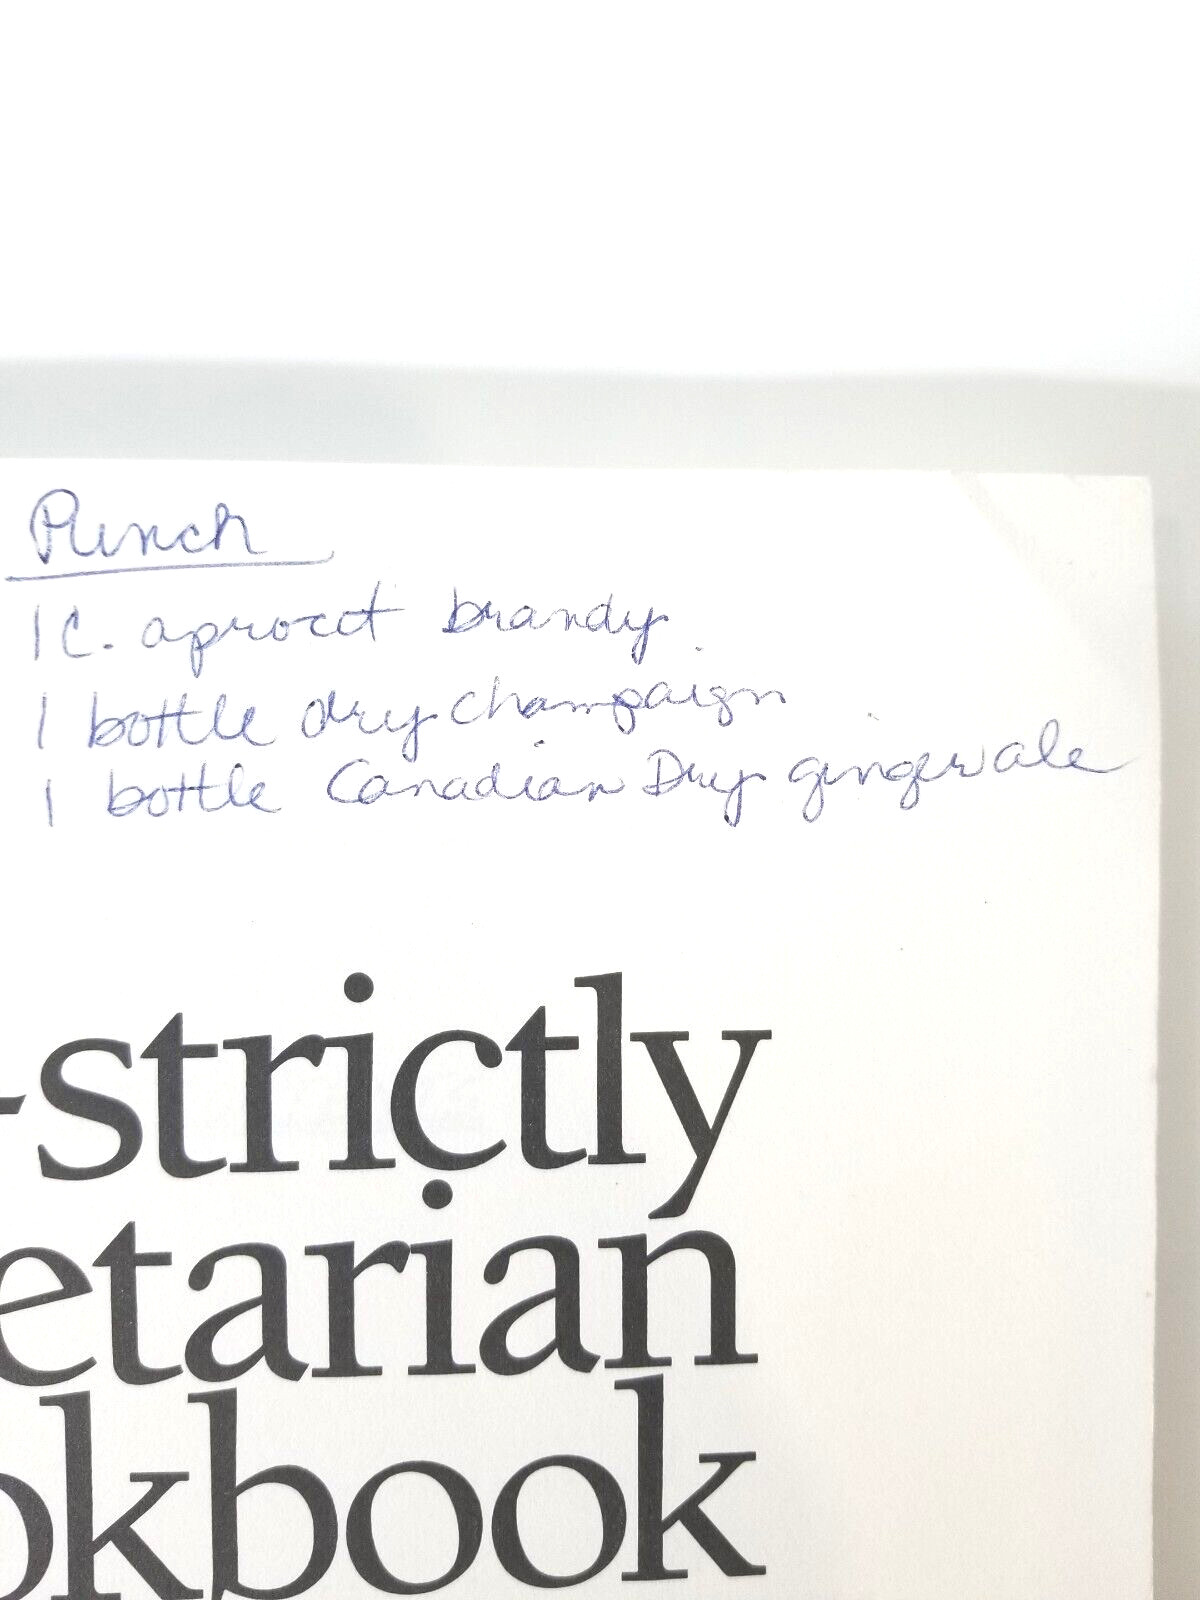 Punch
1 C. aprocot brandy
1 bottle dry champaign
1 bottle Canadian Dry gingerale
-strictly
etarian
okbook